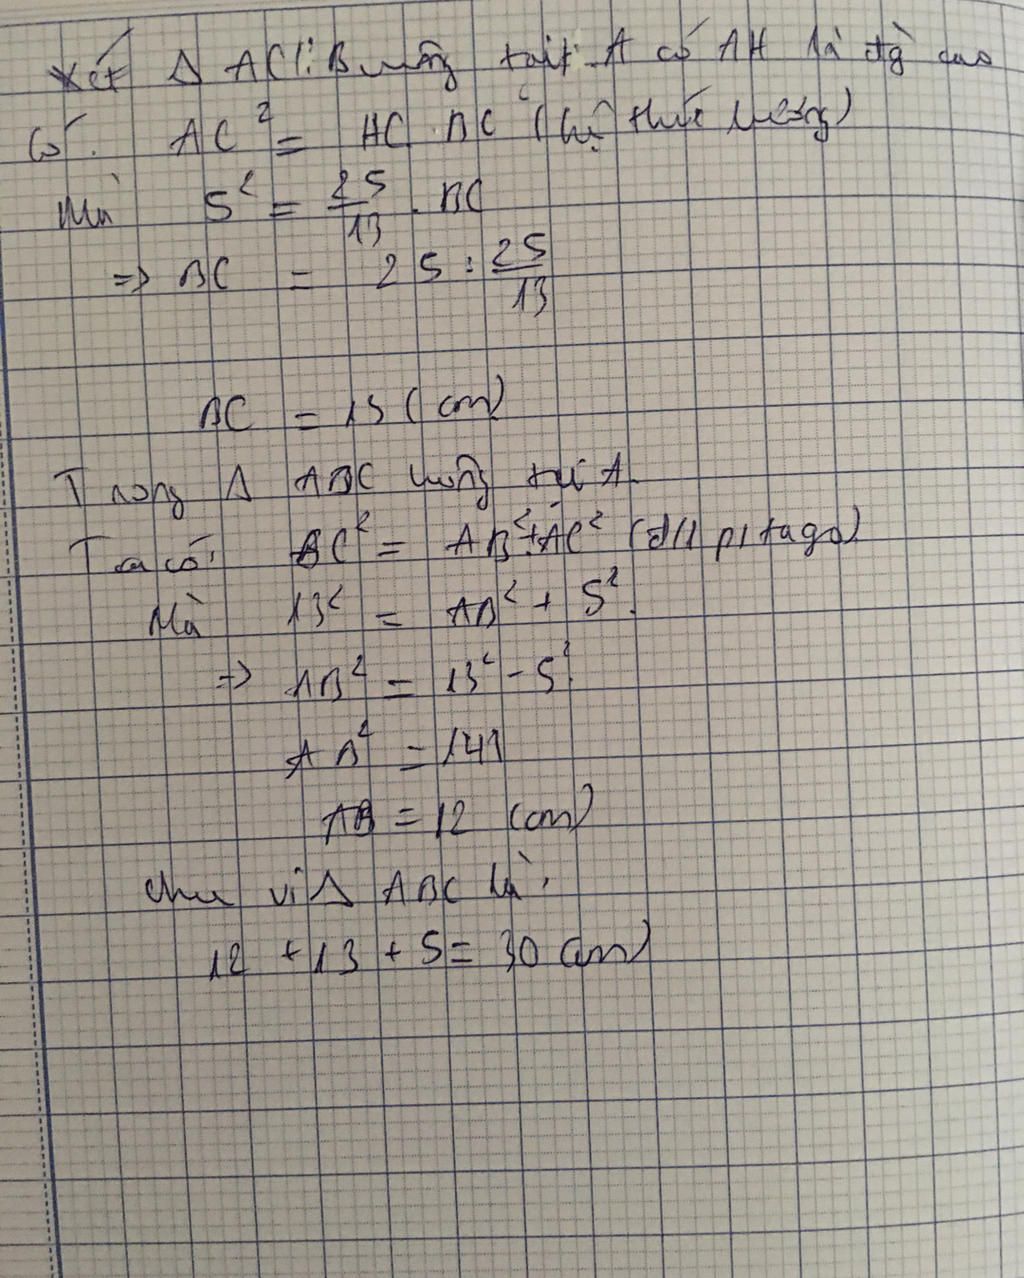 Xét Δ ACB vuông tại A có AH là đg cao
Có: AC² = HC . BC (hệ thức lượng)
Mà 5² = 25/13 . BC
=> BC = 25 : 25/13
BC = 13 (cm)
Trong Δ ABC vuông tại A
Ta có: BC² = AB² + AC² (đ/l pitago)
Mà 13² = AB² + 5²
=> AB² = 13² - 5²
AB² = 144
AB = 12 (cm)
chu vi Δ ABC là:
12 + 13 + 5 = 30 cm)